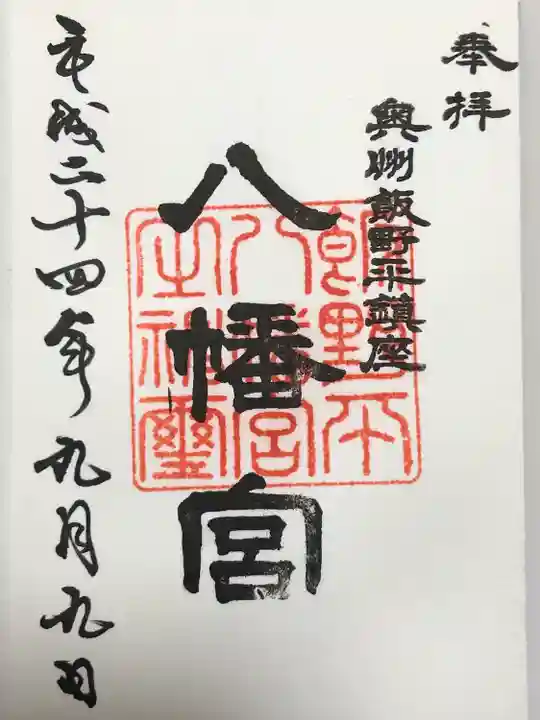 奉拝
奥州飯野平鎮座
八幡宮
飯野平
八幡宮
之神璽
平成二十四年九月九日